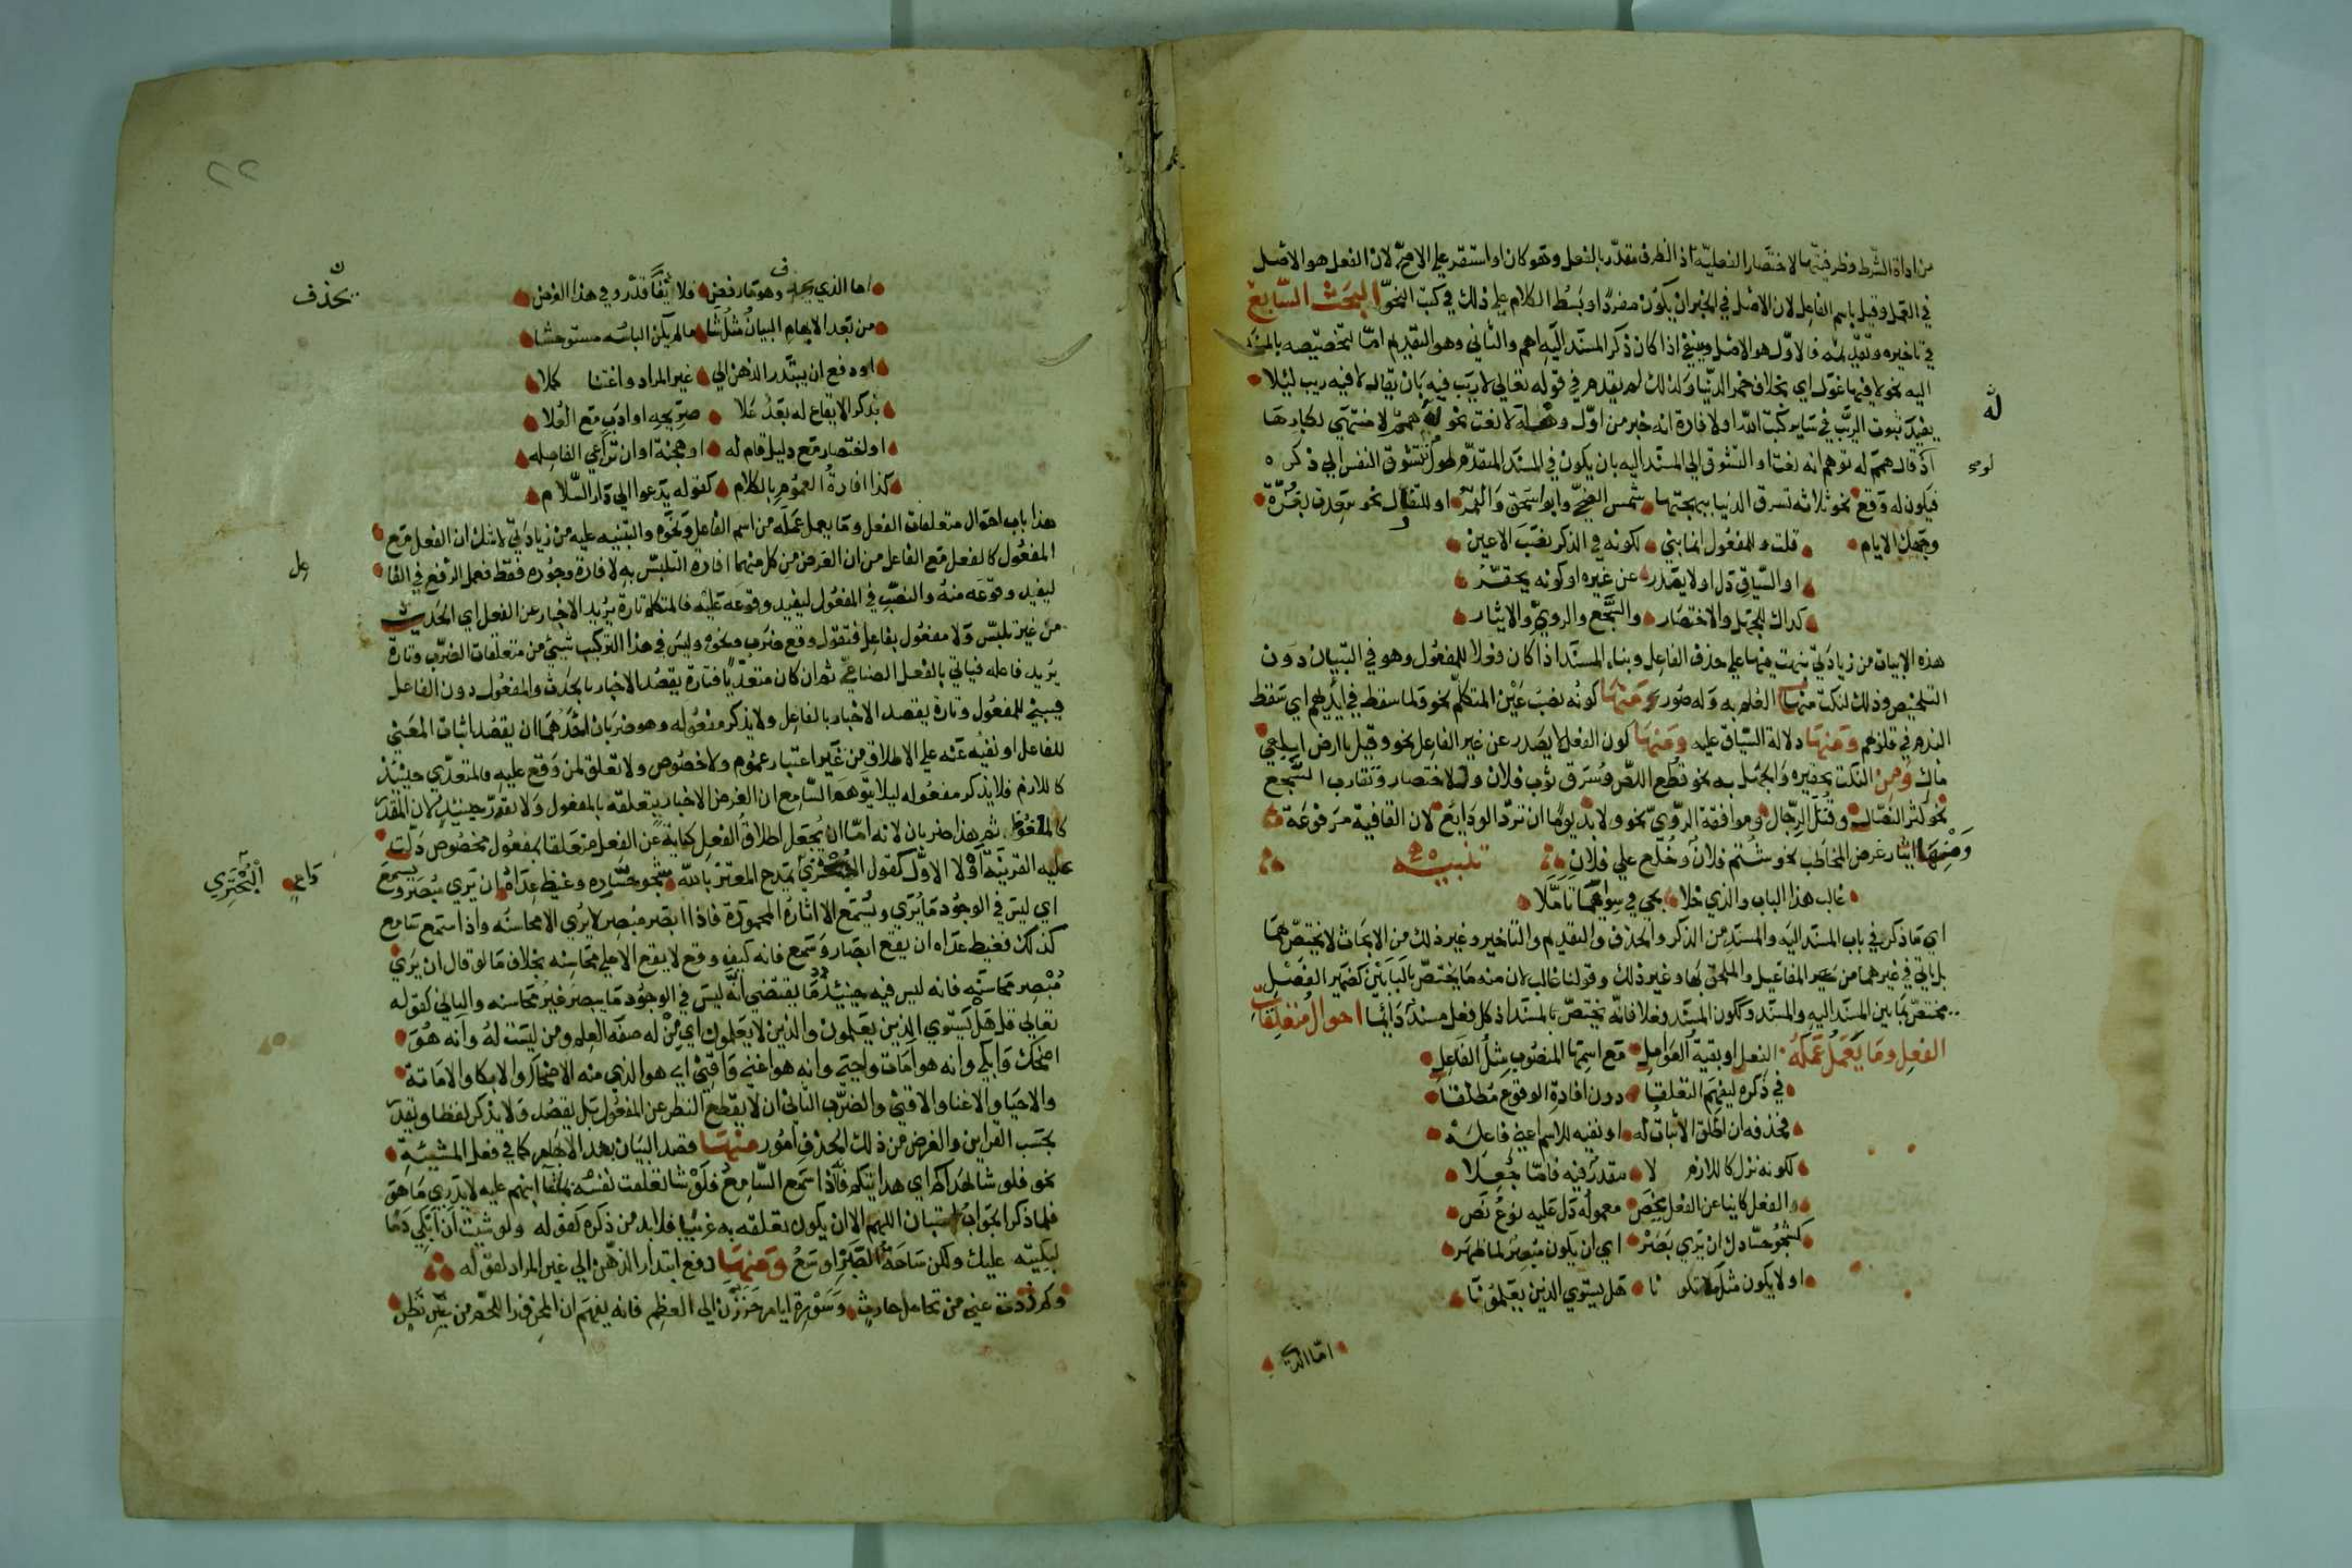 من اداة الشرط وظرفيتها لاختصار الفعلية اذ الظرف مقدر بالفعل وهو كان او استقر على الاصح لان الفعل هو الاصل
في العمل وقيل باسم الفاعل لان الاصل في الخبر ان يكون مفردا وبسط الكلام على ذلك في كتب النحو البحث السابع
في تاخيره وتقديمه فالاول هو الاصل وينبغي اذا كان ذكر المسند اليه اهم والثاني وهو التقديم اما لتخصيصه بالمسند
اليه نحو لا فيها غول اي بخلاف خمر الدنيا ولذلك لم يقدم في قوله تعالى لا ريب فيه بان يقال لا فيه ريب ليلا
يفيد ثبوت الريب في سائر كتب الله او لافادة انه خبر من اول وهلة لا نعت نحو له همم لا منتهى لكبارها
له
اذ لو قال همم له توهم انه نعت او التشوق الى المسند اليه بان يكون في المسند المتقدم طول يشوق النفس الى ذكره
فيكون له وقع نحو ثلاثة تشرق الدنيا ببهجتها شمس الضحى وابو اسحق والقمر او للتفاول نحو سعدت بغرة
وجهك الايام قلت وللمفعول ابنا يبني لكونه في الذكر نصب الاعين
او السياق دل او لا يصدر عن غيره او كونه يحقر
كذاك للجهل والاختصار والسجع والروي والايثار
هذه الابيات من زيادتي نبهت فيها على حذف الفاعل وبناء المسند اذا كان فعلا للمفعول وهو في التبيان دون
التلخيص وذلك لنكت منها العلم به وله صور ومنها كونه نصب عين المتكلم نحو ولما سقط في ايديهم اي سقط
الندم في قلوبهم ومنها دلالة السياق عليه ومنها كون الفعل لا يصدر عن غير الفاعل نحو وقيل يا ارض ابلعي
ماك ومن النكت تحقيره والجهل به نحو قطع اللص وسرق ثوب فلان والاختصار وتقارب السجع
نحو كثر النضال وقتل الرجال وموافقة الروي نحو ولا بد يوما ان ترد الودايع لان القافية مرفوعة
ومنها ايثار غرض المخاطب نحو شتم فلان وخلع على فلان تنبيه
غالب هذا الباب والذي خلا يجي في سواهما تاملا
اي ما ذكر في باب المسند اليه والمسند من الذكر والحذف والتقديم والتاخير وغير ذلك من الابحاث لا يختص بهما
بل ياتي في غيرهما من المفاعيل والملحق بها وغير ذلك وقولنا غالب لان منه ما يختص بالبابين كضمير الفصل
مختص بما بين المسند اليه والمسند وككون المسند فعلا فانه يختص بالمسند اذ كل فعل مسند دائما احوال متعلقات
الفعل وما يعمل عمله الفعل او بقية العوامل مع اسمها المنصوب مثل الفاعل
في ذكره ليفهم التعلقا دون افادة الوقوع مطلقا
فحذفه ان اطلق الاثبات له او نفيه للاسم اعني فاعله
لكونه نزل كاللازم لا مقدر فيه فاما جعلا
والفعل كانيا عن الفعل يخص معموله دل عليه نوع نص
كشجو حسادك ان يرى بصر اي ان يكون مبصر لما ظهر
او لا يكون مثل لا تكونا هل يستوي الذين يعلمونا
اما الذي
٢٢
اما الذي يحذف وهو ما رفض فلائقا قدر وفي هذا الغرض
يحذف
من بعد الابهام البيان مثل شا ما لم يكن الباسه مستوحشا
او دفع ان يبتدر الذهن الى غير المراد واغتنا كلا
بذكر الايقاع له بعد علا صريحه او ادب مع العلا
او لاختصار مع دليل قام له او هجنة او ان تراعي الفاصله
كذا افادة العموم بالكلام كقوله يدعوا الى دار السلام
هذا باب احوال متعلقات الفعل وما يعمل عمله من اسم الفاعل ونحوه والتنبيه عليه من زيادتي لا شك ان الفعل مع
المفعول كالفعل مع الفاعل من ان الغرض من كل منهما افادة التلبس به لا افادة وجوده فقط فعمل الرفع في الفا
عل
ليفيد وقوعه منه والنصب في المفعول ليفيد وقوعه عليه فالمتكلم تارة يريد الاخبار عن الفعل اي الحدث
من غير تلبس ولا مفعول بفاعل فتقول وقع ضرب ونحوه وليس في هذا التركيب شيئ من متعلقات الضرب وتارة
يريد فاعله فياتي بالفعل الصناعي ثم ان كان متعديا فتارة يقصد الاخبار بالحدث والمفعول دون الفاعل
فيبني للمفعول وتارة يقصد الاخبار بالفاعل ولا يذكر مفعوله وهو ضربان احدهما ان يقصد اثبات المعنى
للفاعل او نفيه عنه على الاطلاق من غير اعتبار عموم ولا خصوص ولا تعلق لمن وقع عليه فالمتعدي حينيذ
كاللازم فلا يذكر مفعوله ليلا يتوهم السامع ان الغرض الاخبار بتعلقه بالمفعول ولا يقدر حينيذ لان المقدر
كالملفوظ ثم هذا ضربان لانه اما ان يجعل اطلاق الفعل كناية عن الفعل متعلقا بمفعول مخصوص دلت
عليه القرينة اولا الاول كقول البحتري يمدح المعتز بالله شجو حساده وغيظ عداه ان يرى مبصر ويسمع
واعي البحتري
اي ليس في الوجود ما يرى ويسمع الا اثاره المحمودة فاذا ابصر مبصر لا يرى الا محاسنه واذا استمع سامع
كذلك فغيظ عداه ان يقع ابصار وسمع فانه كيف وقع لا يقع الا على محاسنه بخلاف ما لو قال ان يرى
مبصر محاسنه فانه ليس فيه حينيذ ما يقتضي انه ليس في الوجود ما يبصر غير محاسنه والثاني كقوله
تعالى قل هل يستوي الذين يعلمون والذين لا يعلمون اي من له صفة العلم ومن ليست له وانه هو
اضحك وابكى وانه هو امات واحيى وانه هو اغنى واقنى اي هو الذي منه الاضحاك والابكا والاماتة
والاحيا والاغنا والاقنى والضرب الثاني ان لا يقطع النظر عن المفعول بل يقصد ولا يذكر لفظا ويقدر
بحسب القراين والغرض من ذلك الحذف امور منها قصد البيان بعد الابهام كما في فعل المشيئة
نحو فلو شا لهداكم اي هدايتكم فاذا سمع السامع فلو شا تعلقت نفسه بما انبهم عليه لا يدري ما هو
فلما ذكر الجواب استبان اللهم الا ان يكون تعلقه به غريبا فلا بد من ذكره كقوله ولو شيت ان ابكي دما
لبكيته عليك ولكن ساحة الصبر اوسع ومنها دفع ابتدار الذهن الى غير المراد كقوله
وكم ذدت عني من تحامل حادث وسورة ايام حززن الى العظم فانه يفهم ان الحز